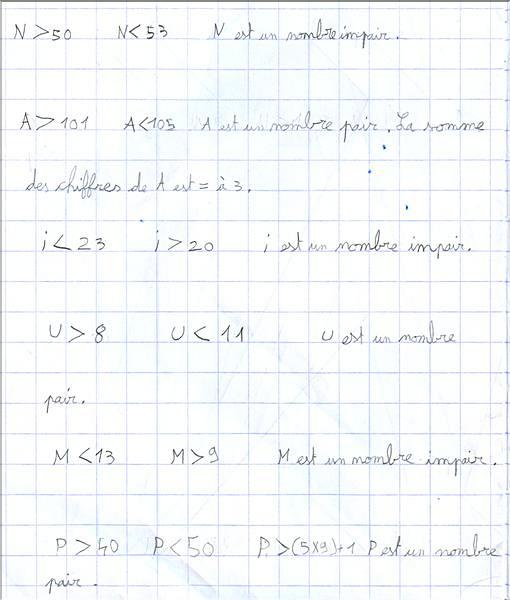 N > 50 N < 53 N est un nombre impair.
A > 101 A < 105 A est un nombre pair. La somme
des chiffres de A est = à 3.
i < 23 i > 20 i est un nombre impair.
U > 8 U < 11 U est un nombre
pair.
M < 13 M > 9 M est un nombre impair.
P > 40 P < 50 P > (5×9)+1 P est un nombre
pair.